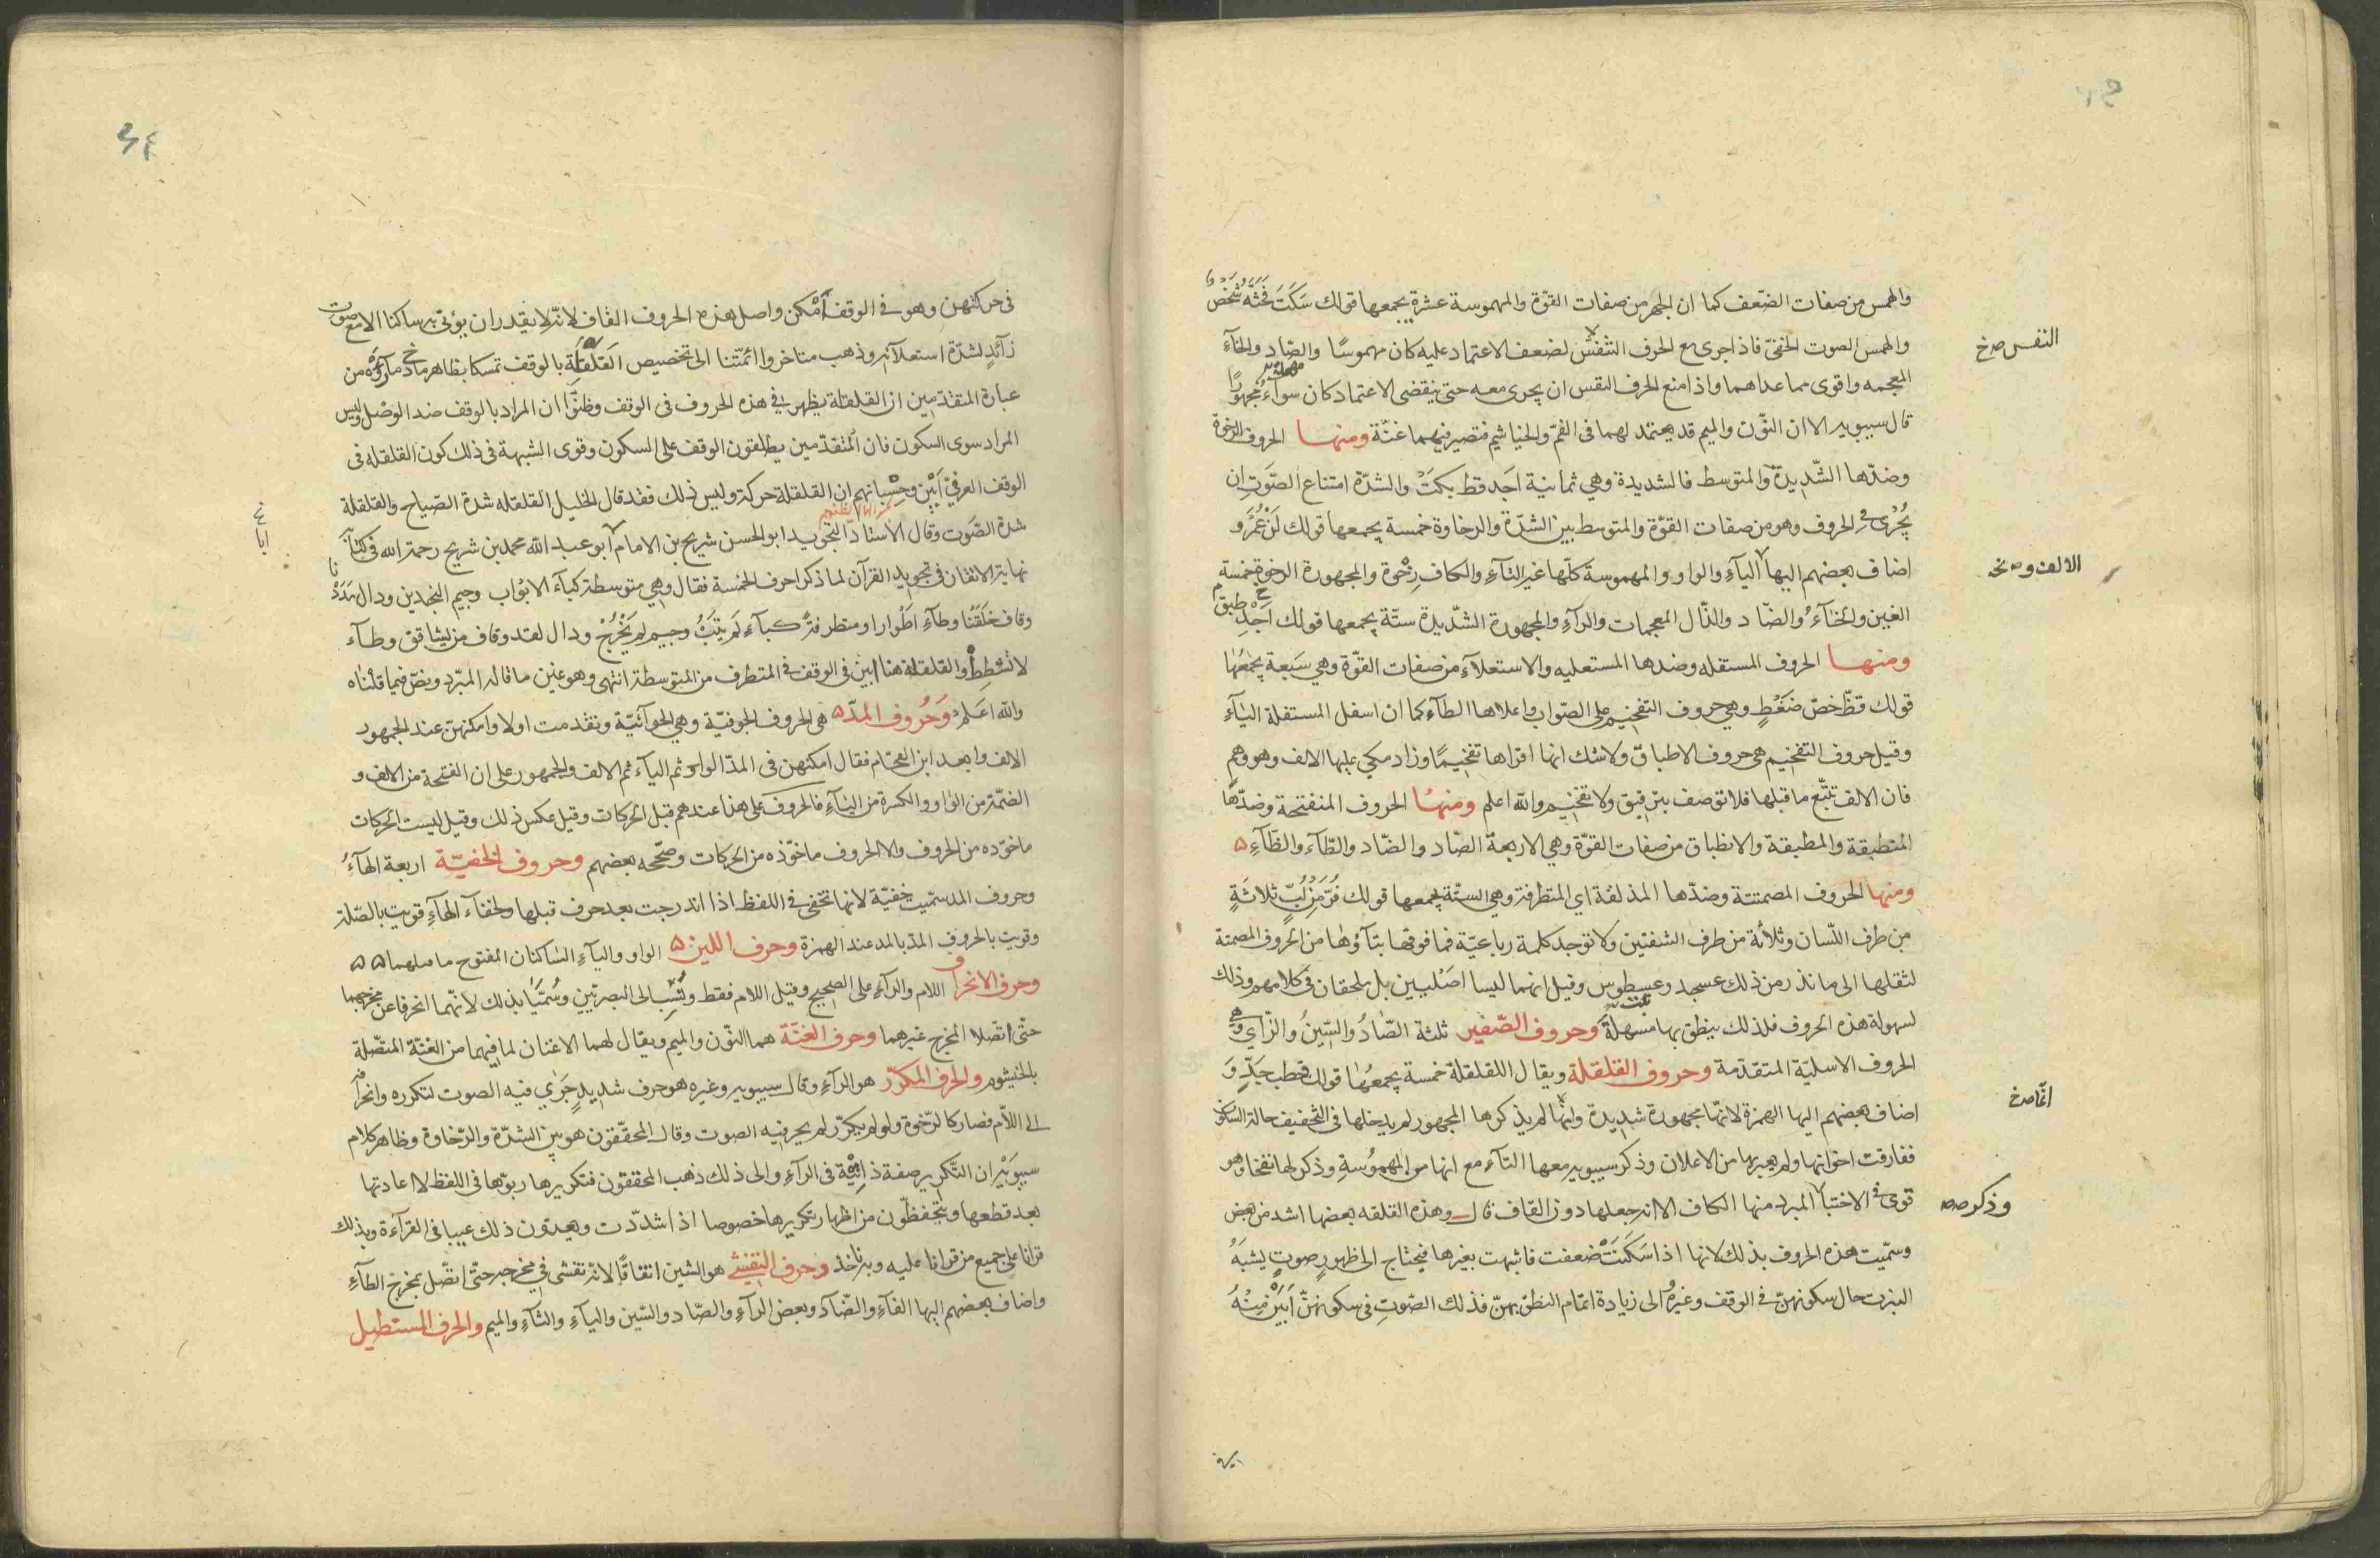 والهمس من صفات الضعف كما ان الجهر من صفات القوة والمهموسة عشرة يجمعها قولك سَكَتَ فَحَثَّهُ شَخْصٌ
والهمس الصوت الخفىّ فاذا جرى مع الحرف التنفسُ لضعف الاعتماد عليه كان مهموسًا والصّاد والخآءُ
النفس صح خ
المعجمه واقوى مما عداهما واذا منع الحرف النفس ان يجرى معه حتى ينقضى الاعتماد كان مجهورًا
قال سيبويه الا ان النّون والميم قد يعتمد لهما فى الفمّ والخياشيم فتصير فيهما غنّة ومنهـا الحروف الرخوة
وضدّها الشّديدة والمتوسط فالشديدة وهي ثمانية اَجَد قط بكتْ والشدّة امتناع الصّوَت ان
يُجْرى فى الحروف وهو من صفات القوّة والمتوسط بين الشدّة والرخاوة خمسة يجمعها قولك لِنْ عُمَرُ و
اضاف بعضهم اليها اليآءِ والواو والمهموسة كلّها غير التآءِ والكاف رِخْوة والمجهورة الرخوة خمسة
الغين والخآءُ والضّاد والذّال المعجمات والرآءِ والمجهورة الشّديدة ستّة يجمعها قولك اَجَدِ طبق
ومنهـا الحروف المستفله وضدها المستعليه والاستعلآء من صفات القوّة وهي سَبعة يجمَعُهَا
قولك قظّ خصّ ضَغْطٍ وهي حروف التفخيم على الصّواب واعلاها الطآء كما ان اسفل المستفلة اليآءِ
وقيل حروف التفخيم هى حروف الاطباق ولا شك انها اقواها تفخيمًا وزاد مكي عليها الالف وهو وهم
فان الالف تتّبع ما قبلها فلا توصف بترقيق ولا تفخيم والله اعلم ومنهُا الحروف المنفتحة وضدّها
المنطبقة والمطبقة والانطباق من صفات القوّة وهي الاربعة الصّاد والضّاد والطّآء والظّآءِ ۵
ومنها الحروف المصمتتة وضدّها المذلقة اي المتطرفة وهي الستّة يجمعها قولك فُرَّ مِنْ لُبِّ ثلاثَةٍ
من طرف اللّسان وثلثة من طرف الشفتين ولا توجد كلمة رباعيّة فما فوقها بنآؤها من الحروف المصمتة
لثقلها الى ما نذر من ذلك عسجد وعسطوس وقيل انهما ليسا اصْليين بل ملحقان فى كلامهم وذلك
لسهولة هذه الحروف فلذلك ينطق بها مسهلةً وحروف الصّفير ثلثة الصّادُ والسّينُ والزّاي وهي
الحروف الاسليّة المتقدّمة وحروف القلقلة ويقال اللقلقلة خمسة يجمعُها قولك قطب جَدٍّ وَ
اضاف بعضهم اليها الهمزة لانّها مجهورة شديدة وانّها لم يذكرها المجهور لم يدخلها فى التخفيف حالة السكون
انّما صح خ
ففارقت اخواتها ولم يعبر بها من الاعلان وذكر سيبويه معها التآء مع انها من المهمُوسةِ وذكر لها نفخا وهو
قوى فى الاختبار المبرد منها الكاف الا انه جعلها دون القاف قال وهذه القلقه بعضها اشد من بعض
وذكر صح
وسمّيت هذه الحروف بذلك لانها اذا سَكَنَتْ ضعفت فاشبهت بغيرها فيحتاج الى ظهور صوتٍ يشبَهُ
النبرت حال سكونهنّ فى الوقف وغيرُه الى زيادة اتمام النطق بهنّ فذلك الصّوتِ فى سكونهنّ اَبَيْن مِنْهُ
فى حركتهن وهو فى الوقف اَمْكن واصل هذه الحروف القاف لانّه لا يقدر ان يؤتى به ساكنا الا مع صوتٍ
زآئدٍ لشدّة استعلآئه وذهب متاخروا ائمّتنا الى تخصيص القَلْقَلَةِ بالوقف تمسكا بظاهر ما رأوه من
عبارة المتقدّمين ان القلقلة يظهر فى هذه الحروف فى الوقف وظنّوا ان المراد بالوقف ضد الوصْل وليس
المراد سوى السكون فان المتقدّمين يطلقون الوقف على السكون وقوى الشبهة فى ذلك كون القلقله فى
الوقف العرفيّ اَبْيَن وحِسْبانهم ان القلقلة حركة وليس ذلك فقد قال الخليل القلقله شدة الصّياح والقلقلة
شدة الصّوَت وقال الاستادّ التجويد ابو الحسن شريح بن الامام ابو عبد الله محمد بن شريح رحمة الله فى كتابه
نهاية الاتقان فى تجويد القرآن لما ذكر احرف الخمسة فقال وهي متوسطة كبآء الابْواب وجيم النجدين ودال مَدَدْنا
وقاف خَلَقْنا وطآءِ اَطْوارا ومتطرفةً كـبآءِ لَمْ يَتُبْ وجيـم لم يَخْرُجْ ودال لقد وقاف من يشاقق وطـآء
لا تُشْطِطْ والقلقلة هنا ابين فى الوقف فى المتطرف من المتوسطة انتهى وهو عين ما قاله المبرّد ونصّ فيما قلْناه
والله اعَـلم وَحُروف المدّ ۵ هى الحروف الجوفيّة وهي الهوآئيّة وتقدمت اولا وامكنهنّ عند الجمهور
الالف وابعد ابن الفحّام فقال امكنهن فى المدّ الواو ثم اليآء ثم الالف والجمهور على ان الفتحة من الالف و
الضمّة من الواو والكسرة من اليآءِ فالحروف على هذا عندهم قبل الحركات وقيل عكس ذلك وقيل ليست الحركات
ماخوذه من الحروف ولا الحروف ماخوّذه من الحركات وصّحّحه بعضهم وحروف الخفيّـة اربعة الهآءُ
وحروف المد سمّيت خفيّة لانها تخفى فى اللفظ اذا اندرجت بعد حرف قبلها ولخفآء الهآءِ قويت بالصّلة
وقويت بالحروف المدّ بالمد عند الهمزة وحرف اللين ۵ الواو واليآءِ السّاكنان المفتوح ما قبلهما ۵۵
وحرف الانحراف اللام والرآءِ على الصحيح وقيل اللام فقط ونُسِبَ الى البصرتيين وسُمّيا بذلك لانّهما انحرفا عن مخرجهما
حتّى اتّصلا المخرج غيرهما وحرف الغنّة هما النّون والميم ويقال لهما الاغنان لما فيهما من الغنّة المتصّلة
بالخيشوم والحرف المكرّر هو الرآءِ وقال سيبويه وغيره هو حرف شديد جَرَي فيه الصوت لتكرره وانحرافه
الى اللّام فصار كالرّخوة ولو لم يكرّر لم يجر فيه الصوت وقال المحقّقون هو بين الشدّة والرّخاوة وظاهر كلام
سيبَويْه ان التّكرير صفة ذاتيّة فى الرآءِ والى ذلك ذهب المحققون فتكريرها ربوّها فى اللفظ لا اعادتها
بعد قطعها ويتحفظّون من اظهار تكريرها خصوصا اذا شدّدت ويعدّون ذلك عيبا فى القرآءة وبذلك
قرانا على جميع من قرانا عليه وبه ناخذ وحرف التفشي هو الشين اتفاقًا لانّه تفشى فى مخرجه حتّى اتصّل بمخرج الطآءِ
واضاف بعضهم اليها الفآءِ والضّآد وبعض الرآءِ والصّاد والسّين واليآءِ والثآءِ والميم والحرف المستطيل